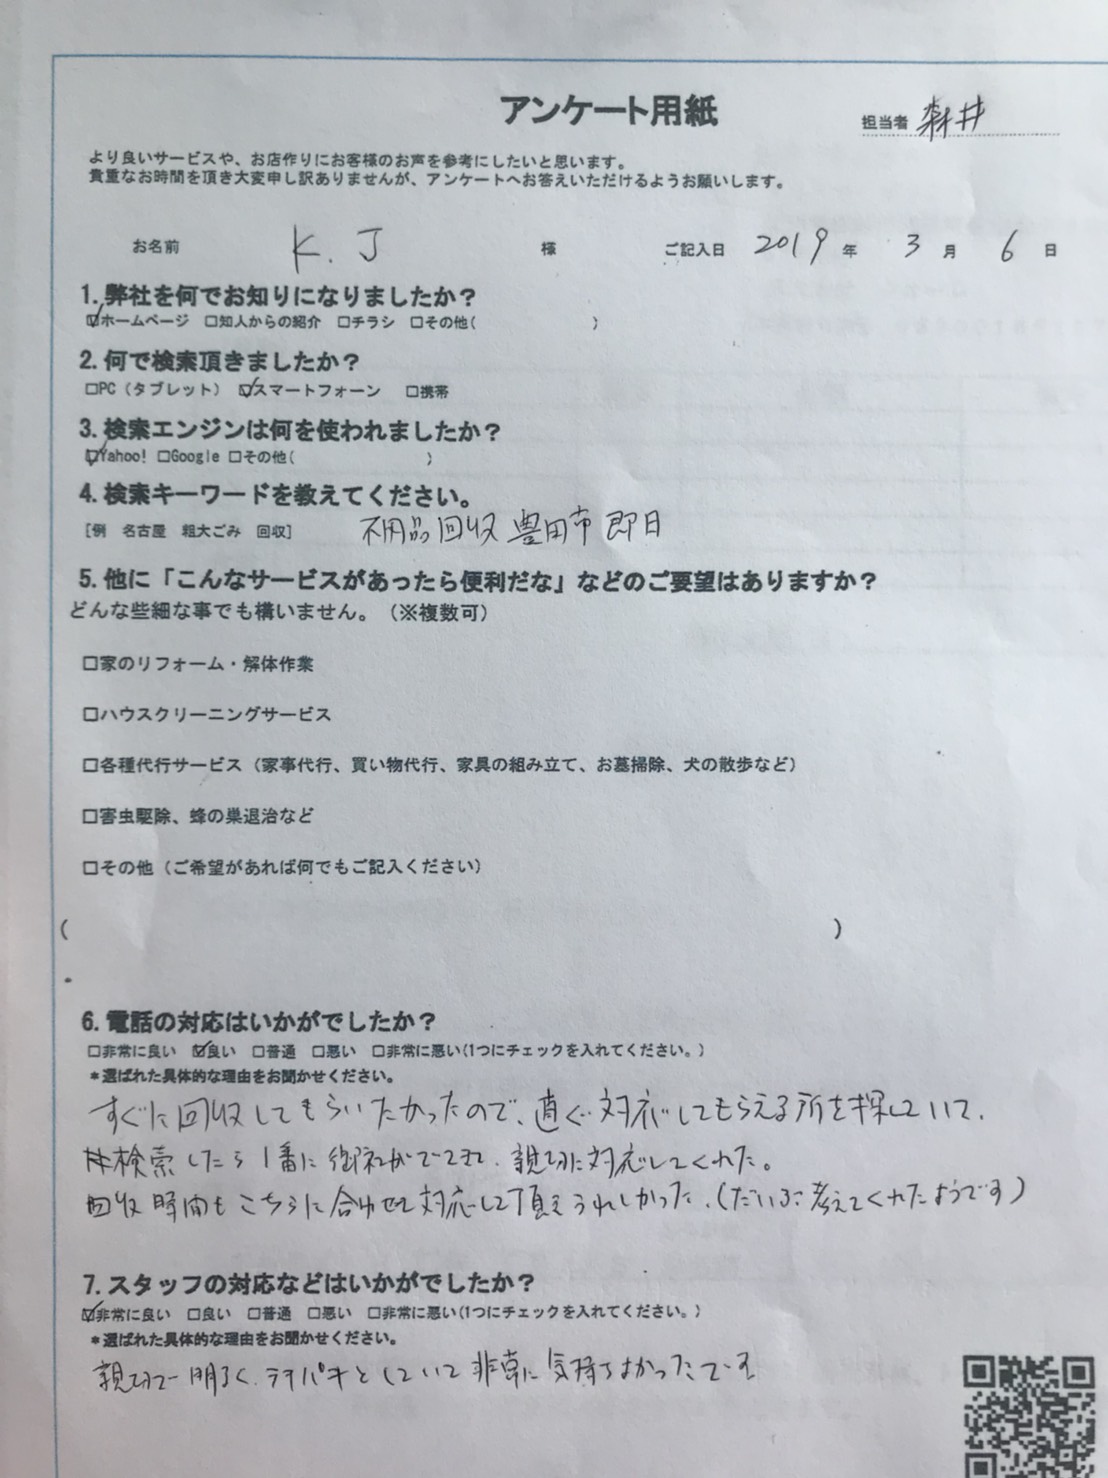 アンケート用紙
担当者 森井
より良いサービスや、お店作りにお客様のお声を参考にしたいと思います。
貴重なお時間を頂き大変申し訳ありませんが、アンケートへお答えいただけるようお願いします。
お名前 K.J 様 ご記入日 2019 年 3 月 6 日
1.弊社を何でお知りになりましたか?
☑ホームページ □知人からの紹介 □チラシ □その他( )
2.何で検索頂きましたか?
□PC(タブレット) ☑スマートフォーン □携帯
3.検索エンジンは何を使われましたか?
☑Yahoo! □Google □その他( )
4.検索キーワードを教えてください。
[例 名古屋 粗大ごみ 回収] 不用品回収 豊田市 即日
5.他に「こんなサービスがあったら便利だな」などのご要望はありますか?
どんな些細な事でも構いません。(※複数可)
□家のリフォーム・解体作業
□ハウスクリーニングサービス
□各種代行サービス(家事代行、買い物代行、家具の組み立て、お墓掃除、犬の散歩など)
□害虫駆除、蜂の巣退治など
□その他(ご希望があれば何でもご記入ください)
( )
6.電話の対応はいかがでしたか?
□非常に良い ☑良い □普通 □悪い □非常に悪い(1つにチェックを入れてください。)
*選ばれた具体的な理由をお聞かせください。
すぐに回収してもらいたかったので、直ぐ対応してもらえる所を探していて、
検索したら1番に御社がでてきて、親切に対応してくれた。
回収時間もこちらに合わせて対応して頂えうれしかった。(だいぶ考えてくれたようです)
7.スタッフの対応などはいかがでしたか?
☑非常に良い □良い □普通 □悪い □非常に悪い(1つにチェックを入れてください。)
*選ばれた具体的な理由をお聞かせください。
親切で明るく、テキパキとしていて非常に気持ちよかったです